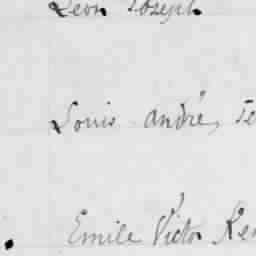 Léon Joseph
Louis André,
Emile Victor